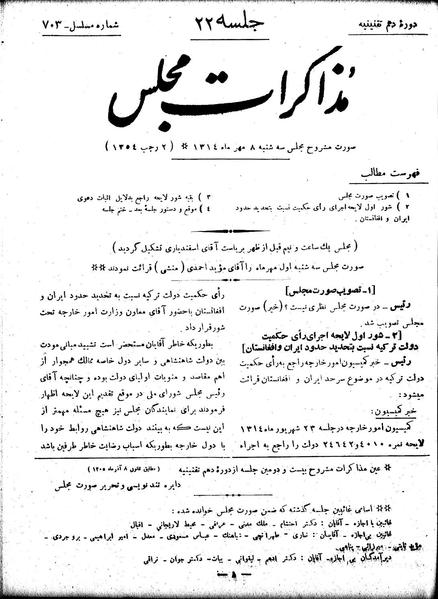 دورهٔ دهم تقنینیه
جلسه ۲۲
شماره مسلسل - ۷۰۳
مذاکرات مجلس
صورت مشروح مجلس سه شنبه ۸ مهر ماه ۱۳۱۴ * (۲ رجب ۱۳۵۴)
فهرست مطالب
۱) تصویب صورت مجلس
۲) شور اول لایحه اجرای رأی حکمیت نسبت بتحدید حدود
ایران و افغانستان.
۳) بقیه شور لایحه راجع بدلایل اثبات دعوی
۴) موقع و دستور جلسه بعد - ختم جلسه
(مجلس یك ساعت و نیم قبل از ظهر بریاست آقای اسفندیاری تشکیل گردید)
صورت مجلس سه شنبه اول مهر ماه را آقای مؤید احمدی (منشی) قرائت نمودند
[۱- تصویب صورت مجلس]
رئیس - در صورت مجلس نظری نیست؟ (خیر) صورت
مجلس تصویب شد.
[۲ - شور اول لایحه اجرای رأی حکمیت
دولت ترکیه نسبت بتحدید حدود ایران و افغانستان]
رئیس - خبر کمیسیون امور خارجه راجع به رأی حکمیت
دولت ترکیه در موضوع سرحد ایران و افغانستان قرائت
میشود:
خبر کمیسیون:
کمیسیون امور خارجه در جلسه ۲۳ شهریور ماه ۱۳۱۴
لایحه نمره ۴۰۱۰ و ۲۴۶۴۲ دولت را راجع به اجراء
رأی حکمیت دولت ترکیه نسبت به تحدید حدود ایران و
افغانستان باحضور آقای معاون وزارت امور خارجه تحت
شور قرار داد.
بطوریکه خاطر آقایان مستحضر است تشیید مبانی مودت
بین دولت شاهنشاهی و سایر دول خاصه ممالك همجوار از
اهم مقاصد و منویات اولیای دولت بوده و چنانچه آقای
رئیس شورای ملی در موقع تقدیم این لایحه اظهار
فرمودند برای نمایندگان مجلس نیز هیچ مسئله مهمتر از
این نیست که به بینند دولت شاهنشاهی روابط خود را
با دول خارجه بطوریکه اسباب رضایت خاطر طرفین باشد
* عین مذاکرات مشروح بیست و دومین جلسه از دوره دهم تقنینیه (مطابق قانون ۸ آذر ماه ۱۳۰۵)
دایره تند نویسی و تحریر صورت مجلس
** اسامی غائبین جلسه گذشته که ضمن صورت مجلس خوانده شده:
غائبین با اجازه - آقایان: دکتر احتشام - ملك مدنی - عراقی - محیط لاریجانی - اقبال
غائبین بی اجازه - آقایان: نمازی - طهرانچی - شاهنك - عباس مسعودی - معدل - امیر ابراهیمی - بروجردی -
دیرآمدگان بی اجازه - آقایان: دکتر ادهم - لیقوانی - بیات - دکتر جوان - نراقی